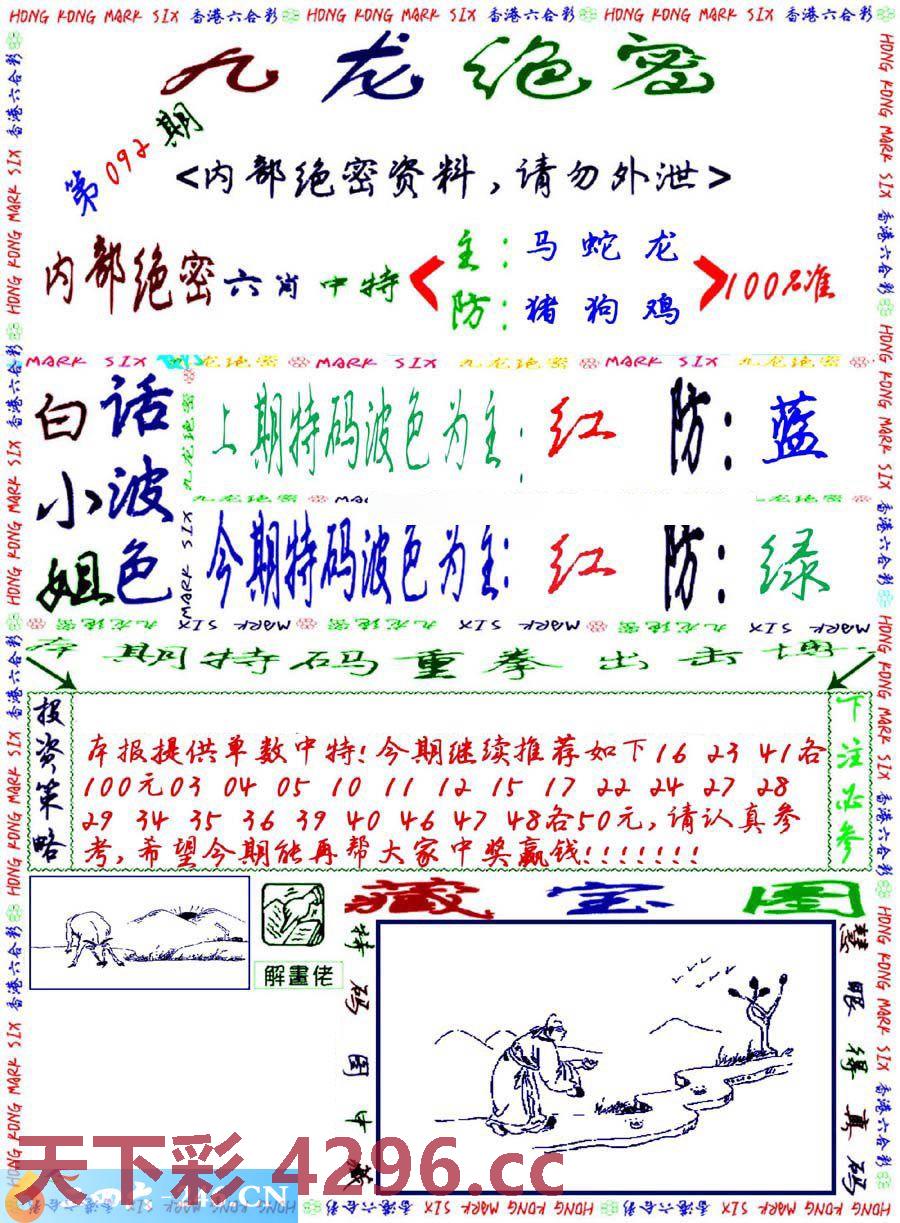 HONG KONG MARK SIX 香港六合彩 HONG KONG MARK SIX 香港六合彩 HONG KONG MARK SIX 香港六合彩
九龙绝密
第092期
<内部绝密资料,请勿外泄>
内部绝密六肖中特
主:马蛇龙
防:猪狗鸡
100%准
MARK SIX 九龙绝密 MARK SIX 九龙绝密 MARK SIX 九龙绝密
白话
小波
姐色
上期特码波色为主:红 防:蓝
今期特码波色为主:红 防:绿
MARK SIX 九龙绝密 MARK SIX 九龙绝密 MARK SIX 九龙绝密 MARK SIX
本期特码重拳出击博
投资策略
本报提供单数中特!今期继续推荐如下16 23 41各
100元03 04 05 10 11 12 15 17 22 24 27 28
29 34 35 36 39 40 46 47 48各50元,请认真参
考,希望今期能再帮大家中奖赢钱!!!!!!!
下注必参
藏宝图
解畫佬
特码图中藏
慧眼得真码
天下彩 4296.cc